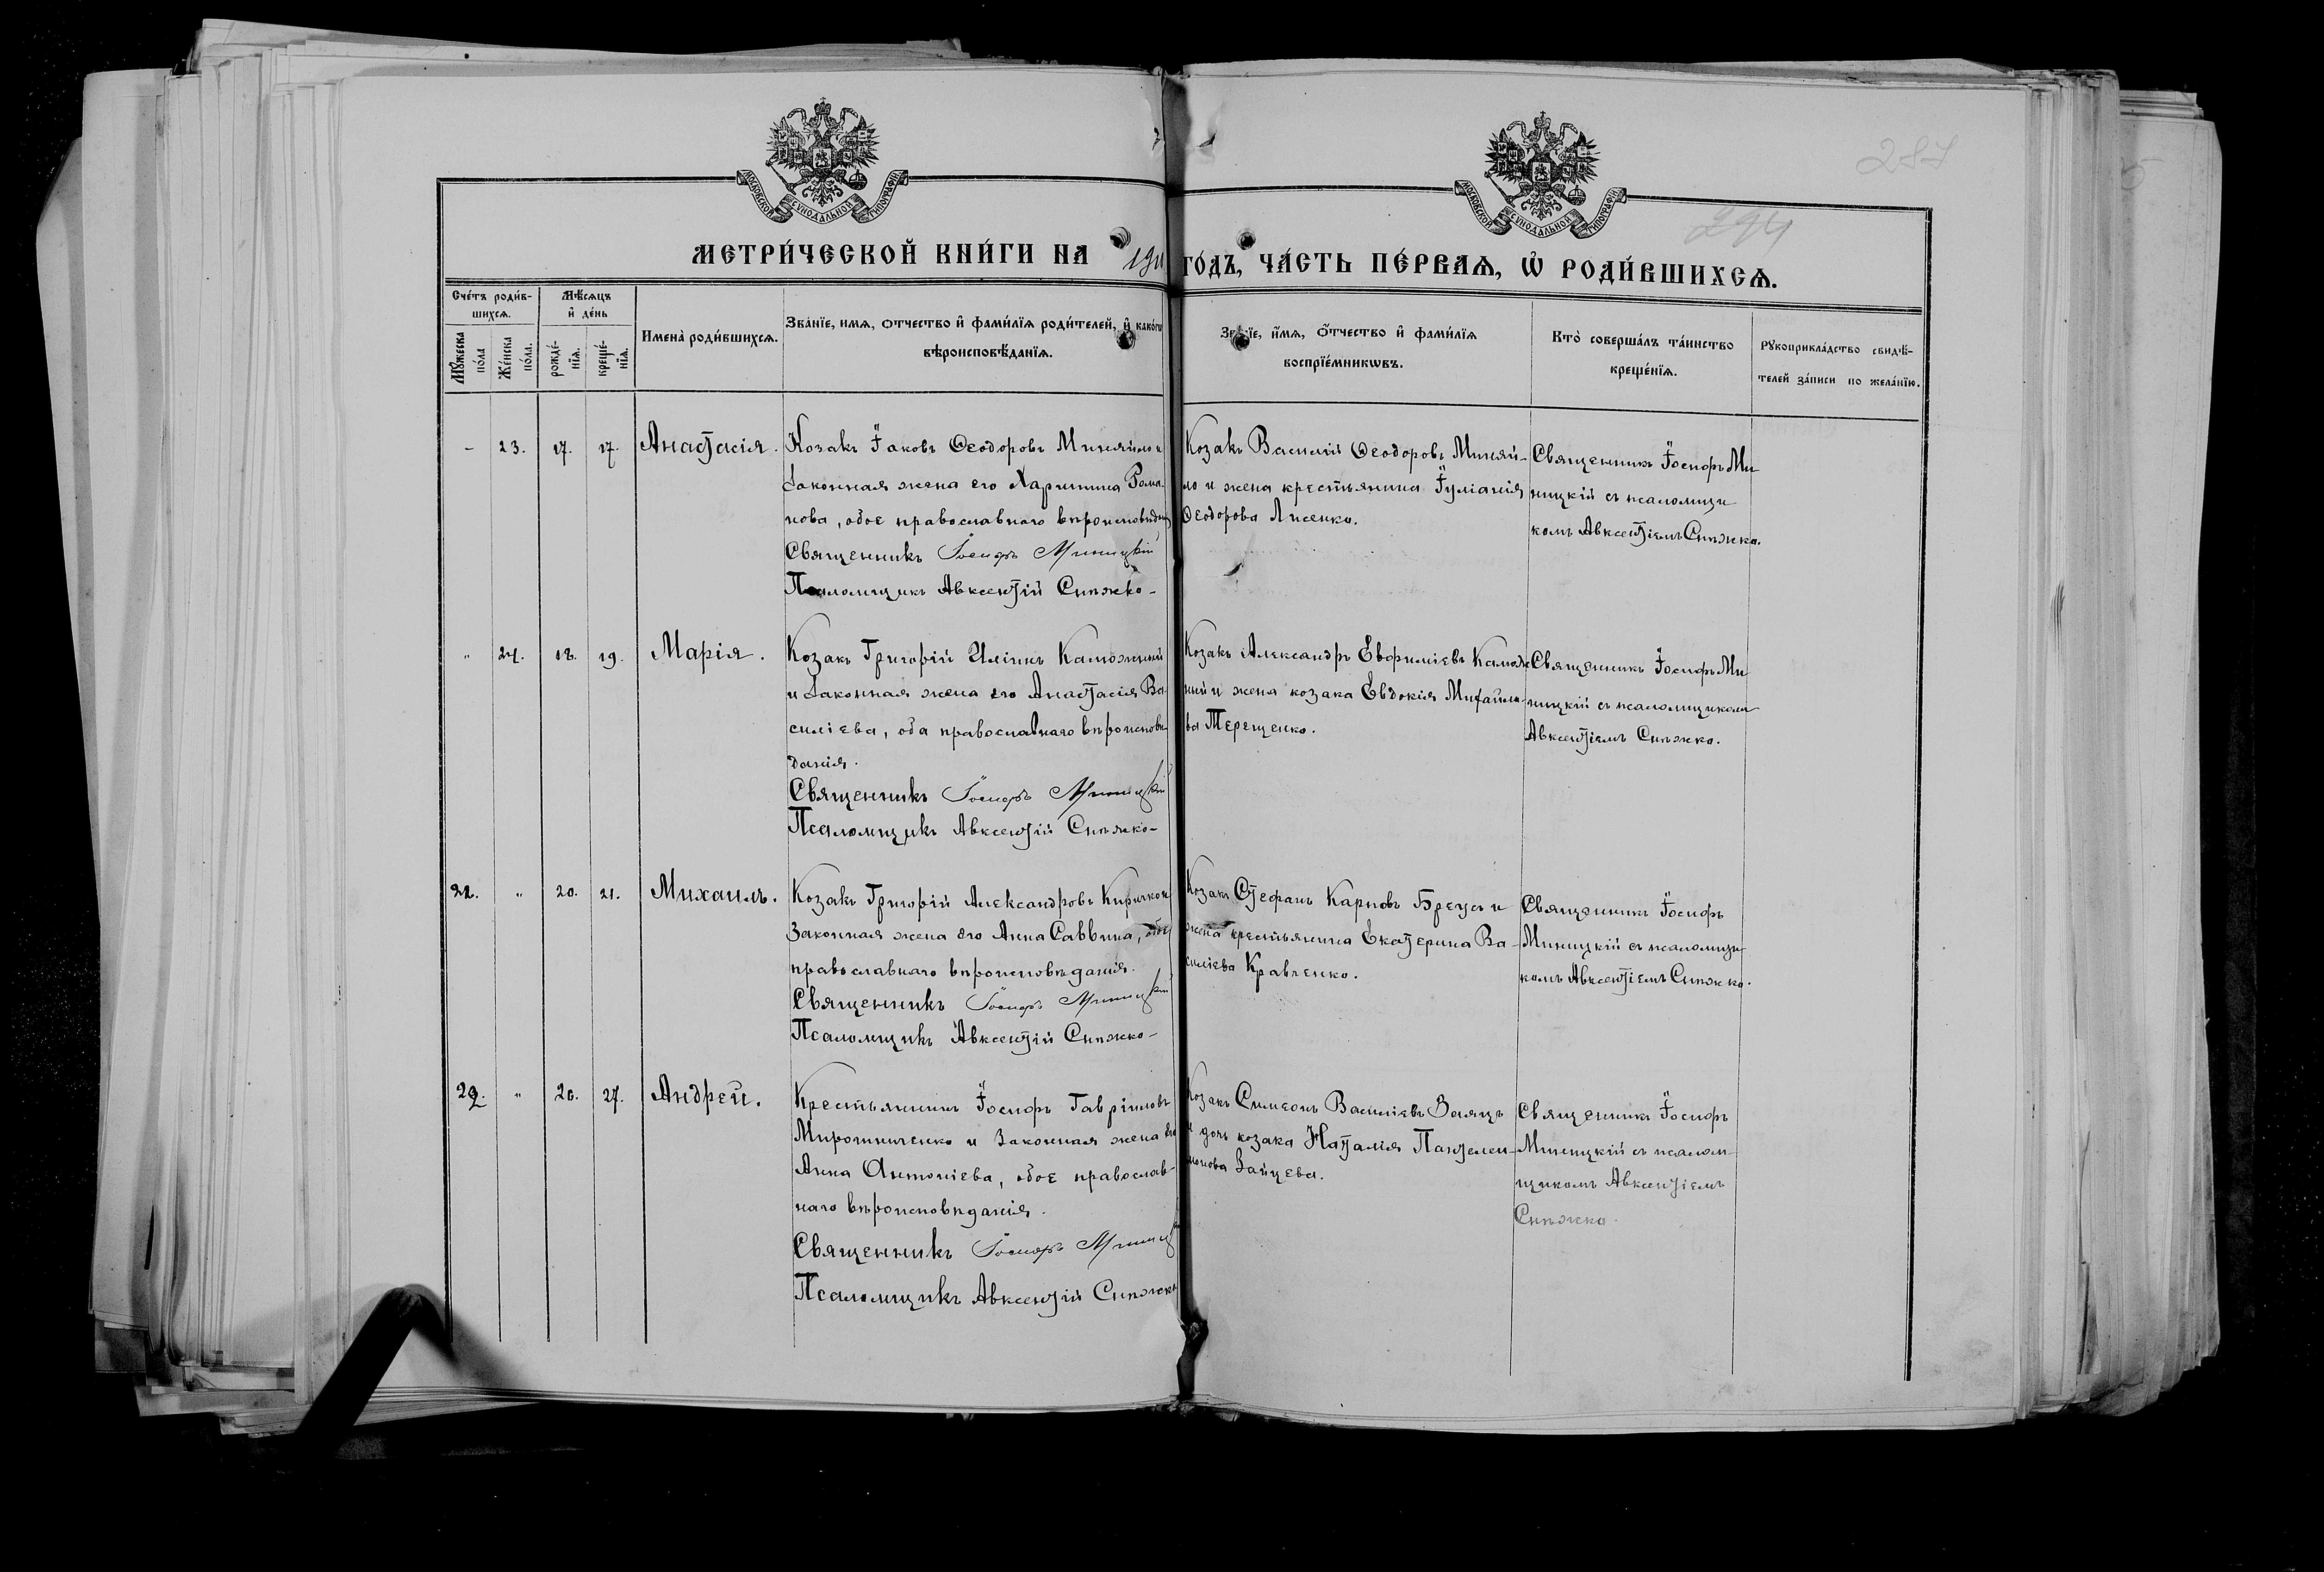 МОСКОВСКОЙ СѴНОДАЛЬНОЙ ТИПОГРАФІИ
МОСКОВСКОЙ СѴНОДАЛЬНОЙ ТИПОГРАФІИ
МЕТРИ́ЧЕСКОЙ КНИ́ГИ НА
ГО́ДЪ, ЧА́СТЬ ПЕ́РВАѦ, Ѡ҆ РОДИ́ВШИХСѦ.
Сче́тъ роди́в-
шихсѧ.
Мꙋ́жеска по́ла
Же́нска по́ла.
Мѣ́сѧцъ
и҆ де́нь
рожде́-нїѧ.
креще́-нїѧ.
Имена̀ роди́вшихсѧ.
Зва́нїе, имѧ, отчество и҆ фами́лїѧ роди́телей, и҆ како́гѡ
вѣроисповѣ́данїѧ.
и҆́мѧ, ѻ҆́тчество и҆ фами́лїѧ
воспрїе́мникѡвъ.
Кто̀ соверша́лъ та́инство
креще́нїѧ.
Рꙋкоприкла́дство свидѣ́-
телей за́писи по жела́нїю.
– 23. 17. 17. Анастасія.
Козакъ Іаковъ Ѳеодоровъ Миняйло и
законная жена его Харитина Рома-
нова, обое православнаго
Священникъ Іосифъ Миницкій
Псаломщикъ Авксентій Снѣжко-
Козакъ Василій Ѳеодоровъ Миняй-
ло и жена крестьянина Іуліанія
Ѳеодорова Лисенко.
Священникъ Іосифъ Ми
ницкій съ псаломщи
комъ Авксентіемъ Снѣжко.
" 24. 18. 19. Марія.
Козакъ Григорій Иліинъ
и законная жена его Анастасія Ва-
силіева, оба православнаго вѣроисповѣ-
данія.
Священникъ Іосифъ Миницкій
Псаломщикъ Авксентій Снѣжко-
Козакъ Александръ Евфиміевъ
ный и жена козака Евдокія Михайло-
ва Терещенко.
Священникъ Іосифъ Ми
ницкій съ псаломщикомъ
Авксентіемъ Снѣжко.
" 20. 21. Михаилъ.
Козакъ Григорій Александровъ
Законная жена его Анна Саввина, обое
православнаго вѣроисповѣданія.
Священникъ Іосифъ Миницкій
Псаломщикъ Авксентій Снѣжко-
Козакъ Стефанъ Карповъ и
жена крестьянина Екатерина Ва-
силіева Кравченко.
Священникъ Іосифъ
Миницкій съ псаломщи-
комъ Авксентіемъ Снѣжко.
" 27. Андрей.
Крестьянинъ Іосифъ Гавріиловъ
Мирошниченко и законная жена его
Анна Антоніева, обое православ-
наго вѣроисповѣданія.
Священникъ Іосифъ
Псаломщикъ Авксентій Снѣжко
Козакъ Симеонъ Василіевъ Заяцъ
и дочь козака Наталія Пантелеи-
монова Зайцева.
Священникъ Іосифъ
Миницкій съ псалом-
щикомъ Авксентіемъ
Снѣжко.